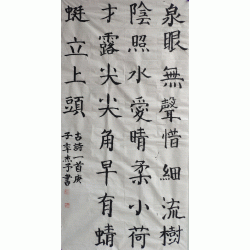 泉眼無聲惜細流樹
陰照水愛晴柔小荷
才露尖尖角早有蜻
蜓立上頭
古詩一首庚
子辛志子書